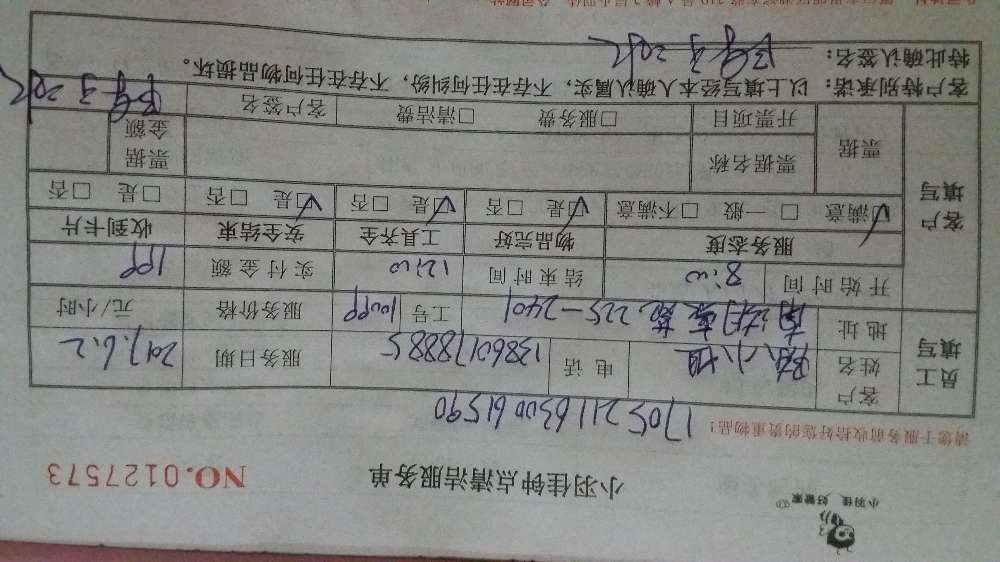 小羽佳 好管家
小羽佳钟点清洁服务单
NO.0127573
请您于服务前收拾好您的贵重物品!
170521163000061590
员工填写
客户姓名 小姐 电话 13860178885 服务日期 2017.6.2
地址 225-2401 工号 服务价格 元/小时
开始时间 8:00 结束时间 12:00 实付金额
客户填写
服务态度 物品完好 工具齐全 安全结束 收到卡片
☑满意 □一般 □不满意 ☑是 □否 ☑是 □否 ☑是 □否 □是 □否
票据 票据名称 票据金额
开票项目 □服务费 □清洁费 客户签名
客户特别承诺:以上填写经本人确认属实,不存在任何纠纷,不存在任何物品损坏。
特此确认签名: